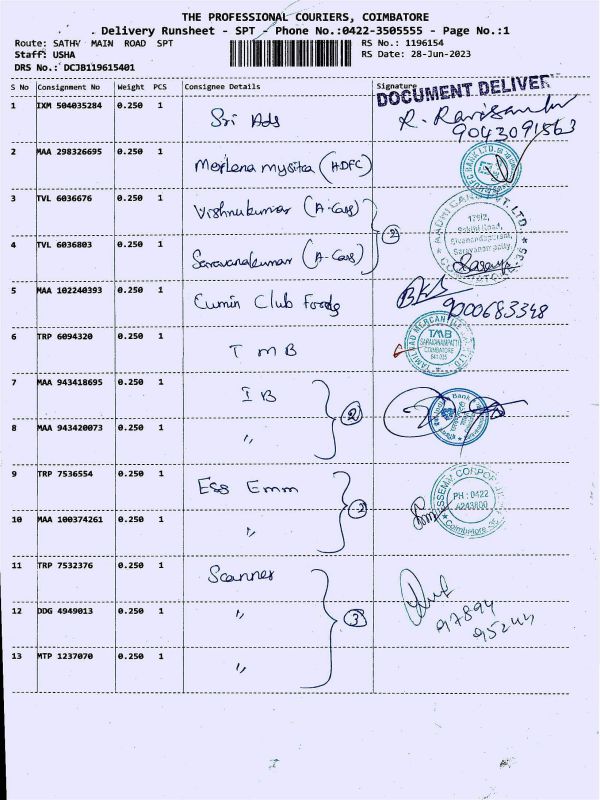 THE PROFESSIONAL COURIERS, COIMBATORE
Delivery Runsheet - SPT - Phone No.:0422-3505555 - Page No.:1
Route: SATHY MAIN ROAD SPT
RS No.: 1196154
Staff: USHA
RS Date: 28-Jun-2023
DRS No.: DCJB119615401
S No Consignment No Weight PCS Consignee Details Signature
DOCUMENT DELIVER
1 IXM 504035284 0.250 1 Sri Ads
9043091563
2 MAA 298326695 0.250 1 (HDFC)
3 TVL 6036676 0.250 1 Vishnukumar (A-Cass)
4 TVL 6036803 0.250 1 Saravanakumar (A-Cass) 2
5 MAA 102240393 0.250 1 Cumin Club Foods
9000683348
6 TRP 6094320 0.250 1 TMB
TAMILNAD MERCANTILE
TMB
SARAVANAMPATTI
COIMBATORE
641 035
7 MAA 943418695 0.250 1 IB
8 MAA 943420073 0.250 1 〃 2
9 TRP 7536554 0.250 1 Ess Emm
PH : 0422
Coimbatore
10 MAA 100374261 0.250 1 〃 2
11 TRP 7532376 0.250 1 Scanner
97894
95244
12 DDG 4949013 0.250 1 〃 3
13 MTP 1237070 0.250 1 〃